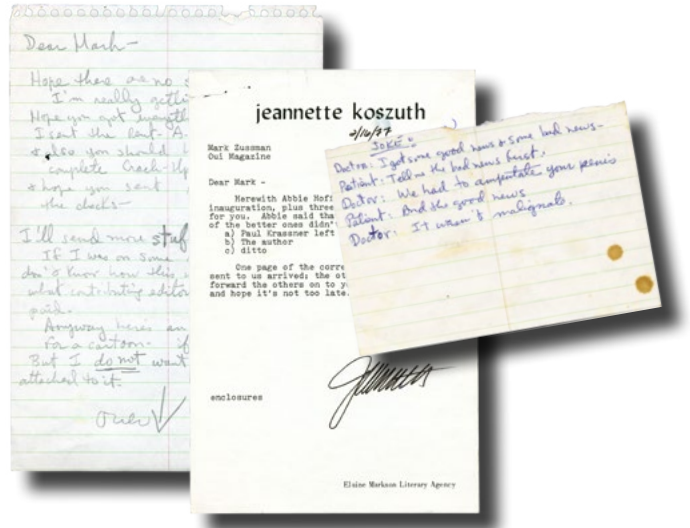 Dear Mark-
Hope there are no
I'm really getti
Hope you got everyth
I sent the last-A-
& also you should
complete Crack-Up
& hope you sent
the clocks-
I'll send more stuf
If I was on some
don't know how this
what contributing editor
paid.
Anyway here's an
for a cartoon- if
But I do not want
attached to it.
over
jeannette koszuth
2/16/77
Mark Zussman
Oui Magazine
Dear Mark -
Herewith Abbie Hoff
inauguration, plus three
for you. Abbie said tha
of the better ones didn'
a) Paul Krassner left
b) The author
c) ditto
One page of the corre
sent to us arrived; the ot
forward the others on to y
and hope it's not too late.
enclosures
Elaine Markson Literary Agency
JOKE:
Doctor: I got some good news & some bad news-
Patient: Tell me the bad news first.
Doctor: We had to amputate your peenis
Patient: And the good news
Doctor: It wasn't malignat.